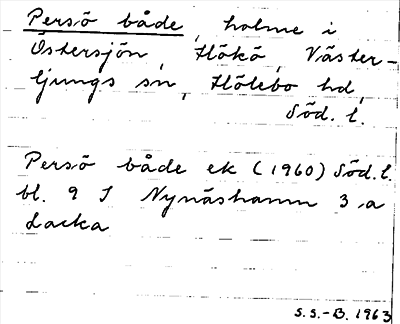 Persö både, holme i
Östersjön, Hökö, Väster-
ljungs sn, Hölebo hd,
Söd. l.
Persö både ek (1960) Söd. l.
bl. 9 I Nynäshamn 3 a
Lacka
S.S.-B. 1963